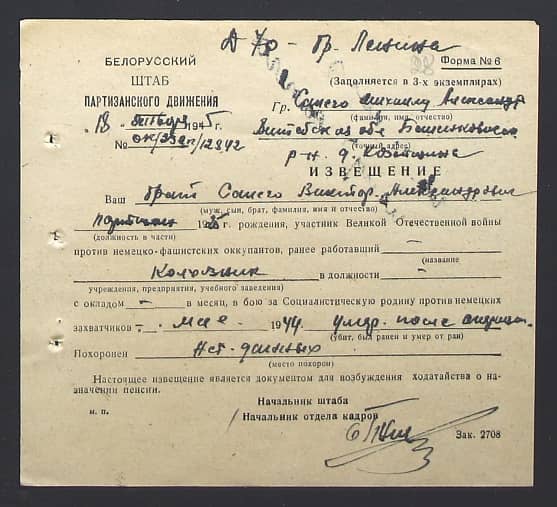 Д 70 - Гр. Ленина
28 Форма № 6
БЕЛОРУССКИЙ
ШТАБ
ПАРТИЗАНСКОГО ДВИЖЕНИЯ
(Заполняется в 3-х экземплярах)
Гр. Михаилу
(фамилия, имя, отчество)
"18 января 1945 г.
№ 12842
Витебская обл
(точный адрес)
р-н. д.
ИЗВЕЩЕНИЕ
Ваш брат Виктор Александрович
(муж, сын, брат, фамилия, имя и отчество)
партизан рождения, участник Великой Отечественной войны
(должность в части)
против немецко-фашистских оккупантов, ранее работавший —
(название
Колхозник в должности —
учреждения, предприятия, учебного заведения)
с окладом — в месяц, в бою за Социалистическую родину против немецких
захватчиков -„- мае 1944 умер. после
(убит, был ранен и умер от ран)
Похоронен Нет данных
(место похорон)
Настоящее извещение является документом для возбуждения ходатайства о на-
значении пенсии.
Начальник штаба
м. п.
Начальник отдела кадров
Зак. 2708